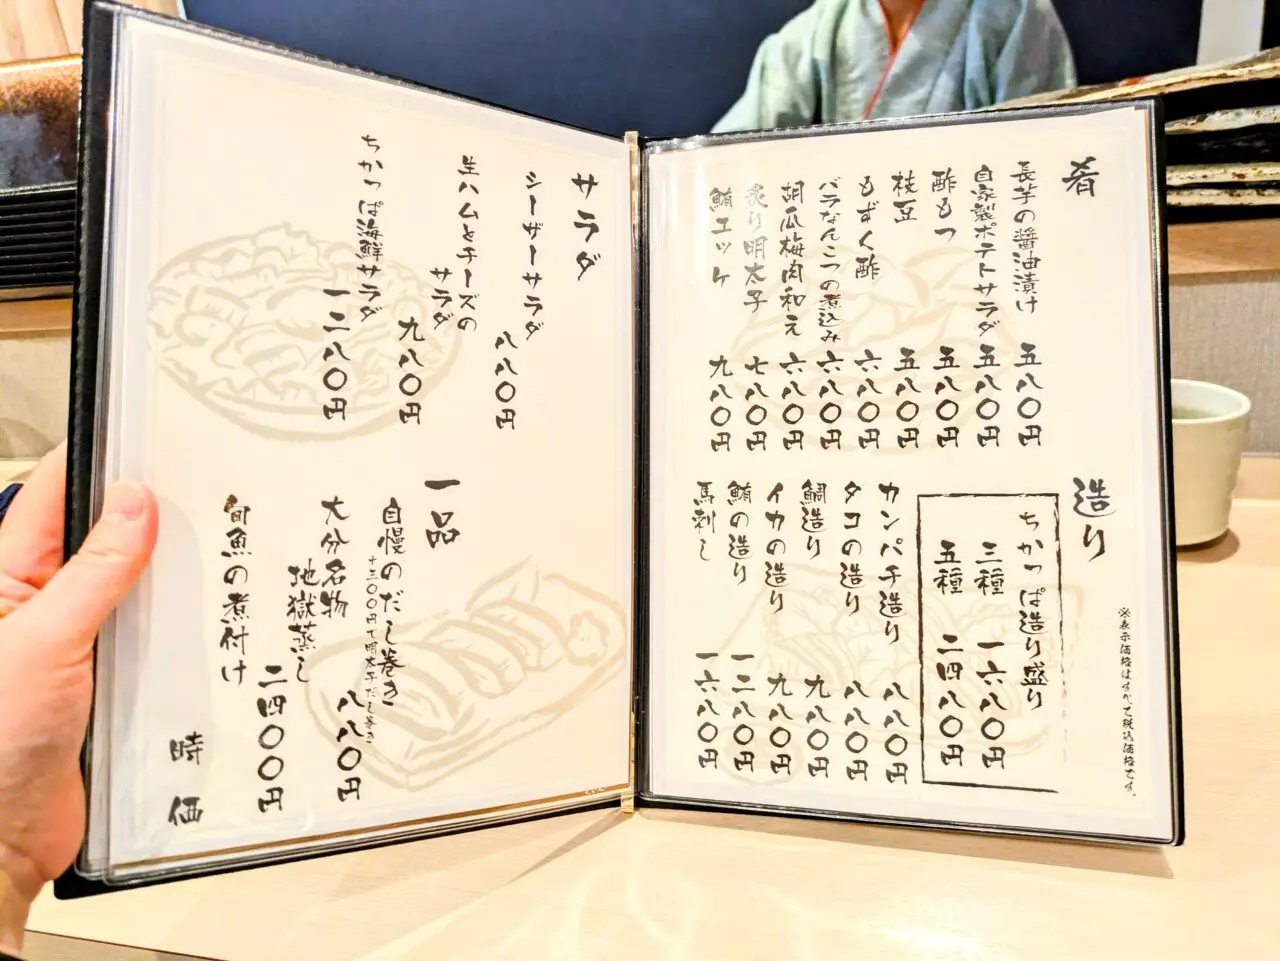 肴
長芋の醤油漬け 五八〇円
自家製ポテトサラダ 五八〇円
酢もつ 五八〇円
枝豆 五八〇円
もずく酢 六八〇円
バラなんこつの煮込み 六八〇円
胡瓜梅肉和え 六八〇円
炙り明太子 七八〇円
鮪ユッケ 九八〇円
造り
ちかっぱ造り盛り
三種 一六八〇円
五種 二四八〇円
カンパチ造り 八八〇円
タコの造り 八八〇円
鯛造り 九八〇円
イカの造り 九八〇円
鮪の造り 一二八〇円
馬刺し 一六八〇円
※表示価格はすべて税込価格です。
サラダ
シーザーサラダ 八八〇円
生ハムとチーズの
サラダ 九八〇円
ちかっぱ海鮮サラダ 一二八〇円
一品
自慢のだし巻き 八八〇円
+三〇〇円で明太子だし巻き
大分名物
地獄蒸し 二四〇〇円
旬魚の煮付け 時価